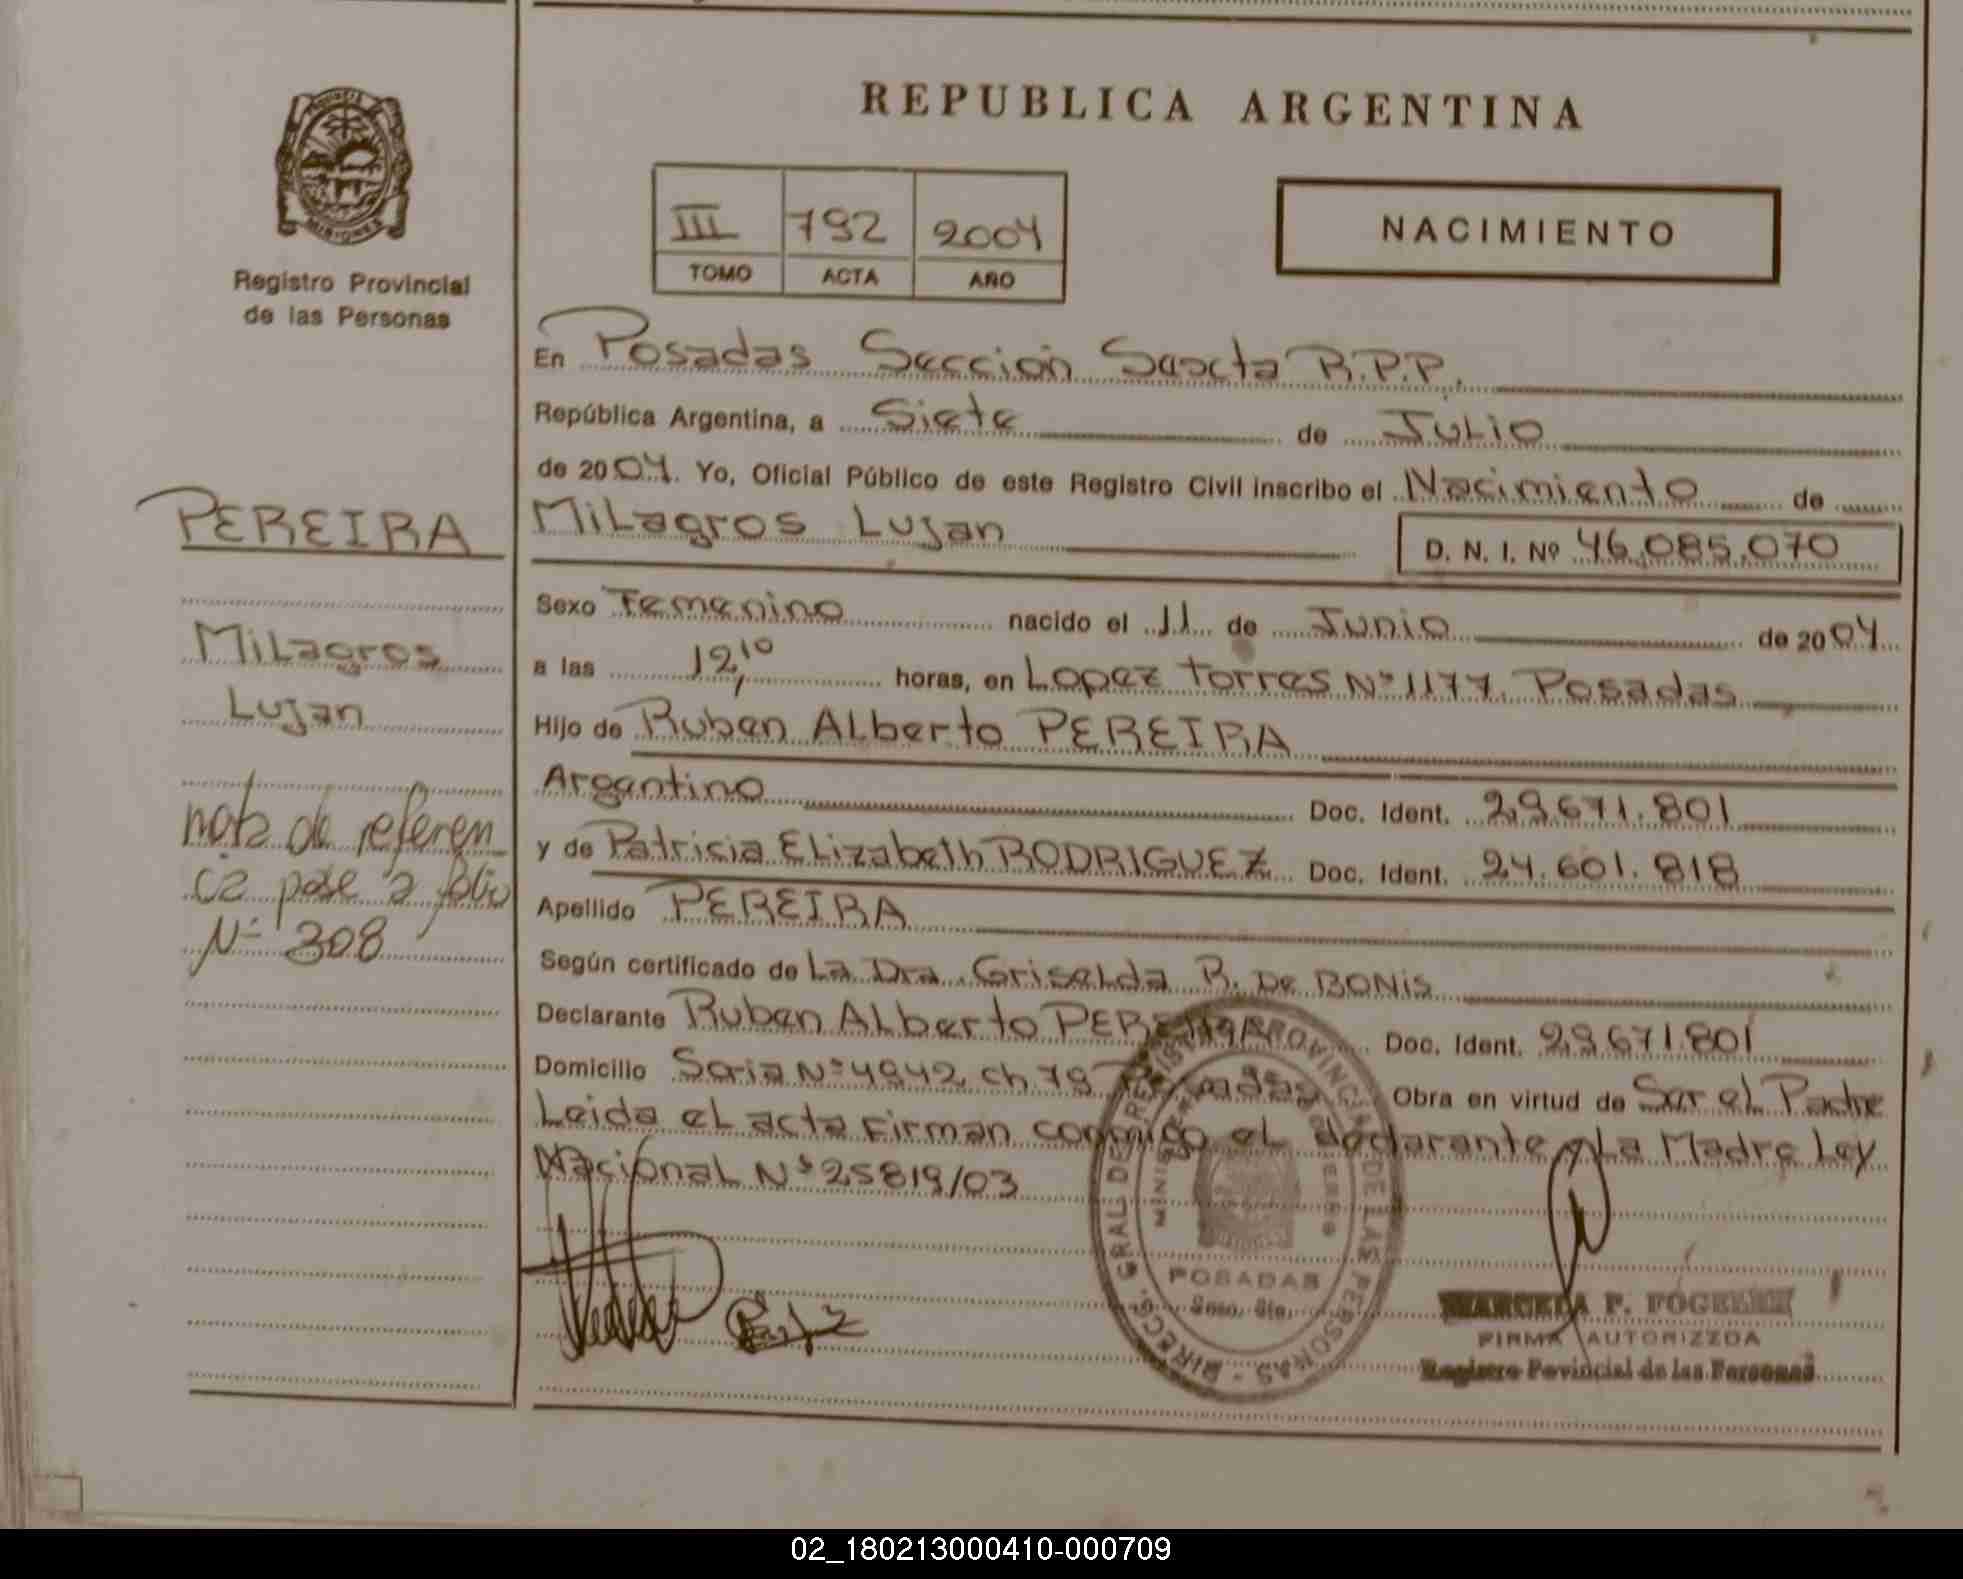 REPUBLICA ARGENTINA
PROVINCIA
MISIONES
Registro Provincial
de las Personas
III 792 2004
TOMO ACTA AÑO
NACIMIENTO
PEREIRA
Milagros
Lujan
nota de referen
cia pase a folio
Nº 308
En Posadas Sección Sexta R.P.P.
República Argentina, a Siete de Julio
de 2004. Yo, Oficial Público de este Registro Civil inscribo el Nacimiento de
Milagros Lujan D. N. I. Nº 46.085.070
Sexo Femenino nacido el 11 de Junio de 2004
a las 12,10 horas, en Lopez Torres Nº 1177 Posadas
Hijo de Ruben Alberto PEREIRA
Argentino Doc. Ident. 29.671.801
y de Patricia Elizabeth RODRIGUEZ Doc. Ident. 24.601.818
Apellido PEREIRA
Según certificado de La Dra. Griselda R. De BONIS
Declarante Ruben Alberto PEREIRA Doc. Ident. 29.671.801
Domicilio Soria Nº 4942 ch 79 Posadas Obra en virtud de Ser el Padre
Leida el acta firman conmigo el declarante y La Madre Ley
Nacional Nº 25819/03
DIREC. GRAL DE REGISTRO PROVINCIAL DE LAS PERSONAS
POSADAS
MARCELA P.
FIRMA AUTORIZZDA
Registro Povincial de las Personas
02_180213000410-000709